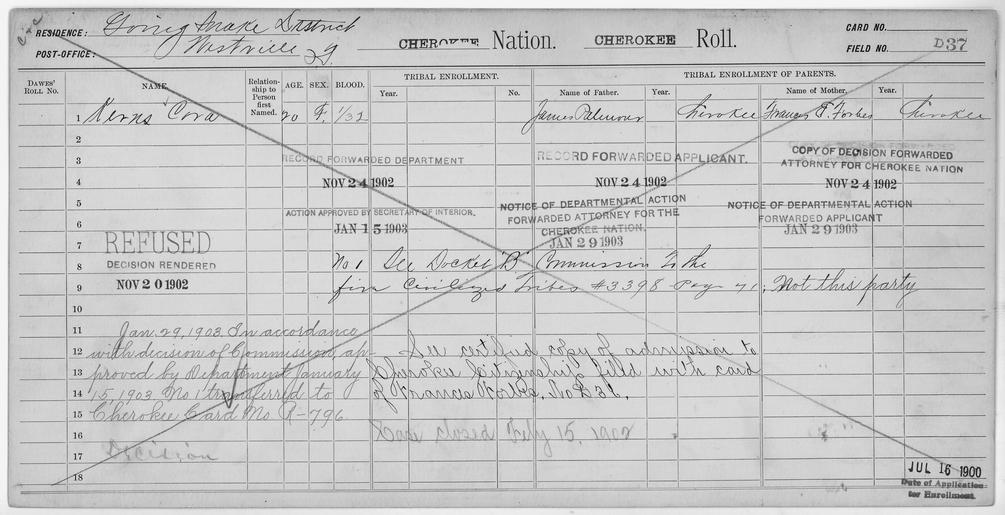 RESIDENCE: Going Snake District
POST-OFFICE: Westville
CHEROKEE Nation. CHEROKEE Roll.
CARD NO.
FIELD NO. D37
DAWES' ROLL No.
NAME.
Relationship to Person first Named.
AGE. SEX. BLOOD.
TRIBAL ENROLLMENT.
Year. No.
TRIBAL ENROLLMENT OF PARENTS.
Name of Father. Year. Name of Mother. Year.
1 Kerns Cora 20 F. 1/32 James Cherokee Frances F. Forbes Cherokee
2
3 RECORD FORWARDED DEPARTMENT RECORD FORWARDED APPLICANT. COPY OF DECISION FORWARDED
ATTORNEY FOR CHEROKEE NATION
4 NOV 24 1902 NOV 24 1902 NOV 24 1902
5 NOTICE OF DEPARTMENTAL ACTION NOTICE OF DEPARTMENTAL ACTION
6 ACTION APPROVED BY SECRETARY OF INTERIOR. FORWARDED ATTORNEY FOR THE FORWARDED APPLICANT
JAN 15 1903 CHEROKEE NATION. JAN 29 1903
7 REFUSED JAN 29 1903
8 DECISION RENDERED No 1 See Docket "B" Commission to the
9 NOV 20 1902 five Civilized Tribes #3398 Page 71. Not this party
10
11 Jan. 29, 1903. In accordance
12 with decision of Commission, ap- See certified copy of admission to
13 proved by Department January Cherokee Citizenship filed with card
14 15, 1903 No 1 transferred to of Frances Forbes. No D 36.
15 Cherokee Card No. R-796
16 Case closed July 15, 1902
17 Decision
18
JUL 16 1900
Date of Application
for Enrollment.